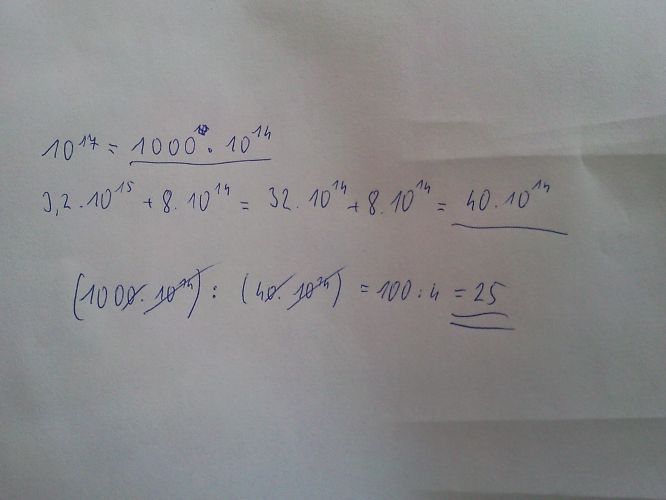 10¹⁷ = 1000 · 10¹⁴
3,2 · 10¹⁵ + 8 · 10¹⁴ = 32 · 10¹⁴ + 8 · 10¹⁴ = 40 · 10¹⁴
(1000 · 10¹⁴) : (40 · 10¹⁴) = 100 : 4 = 25